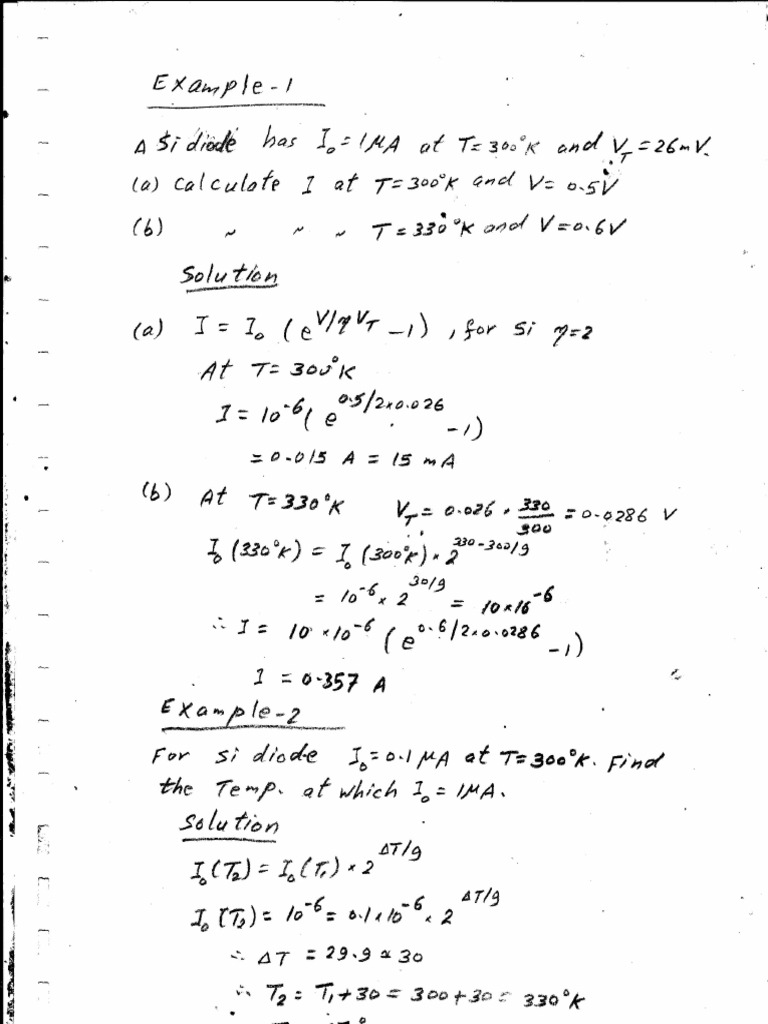 Example-1
A Si diode has I₀ = 1μA at T = 300°K and V_T = 26mV.
(a) Calculate I at T = 300°K and V = 0.5V
(b) ~ ~ ~ T = 330°K and V = 0.6V
Solution
(a) I = I₀ (e^{V/ηV_T} - 1), for Si η = 2
At T = 300°K
I = 10^{-6} (e^{0.5/2×0.026} - 1)
= 0.015 A = 15 mA
(b) At T = 330°K V_T = 0.026 × 330/300 = 0.0286 V
I₀ (330°K) = I₀ (300°K) × 2^{330-300/9}
= 10^{-6} × 2^{30/9} = 10×10^{-6}
∴ I = 10×10^{-6} (e^{0.6/2×0.0286} - 1)
I = 0.357 A
Example-2
For Si diode I₀ = 0.1 μA at T = 300°K. Find
the Temp. at which I₀ = 1μA.
Solution
I₀(T₂) = I₀(T₁) × 2^{ΔT/9}
I₀(T₂) = 10^{-6} = 0.1×10^{-6} × 2^{ΔT/9}
∴ ΔT = 29.9 ≈ 30
∴ T₂ = T₁ + 30 = 300 + 30 = 330°K